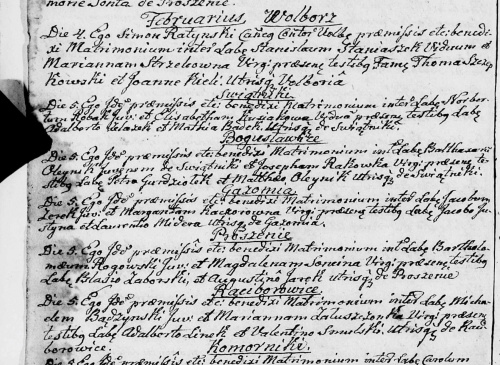 morie Sonta de Proszenie.
Februarius Wolborz
Die 4. Ego Simon Ratynski Caneg Cantor Wolbo præmissis etc: benedi-
xi Matrimonium inter Labo Stanislaum Staniaszek Viduum et
Mariannam Strzebowna Virgi præsene testibg Fame Thoma Szcze
Kowski et Joanne Kieli Utrisq Wolboria
Swiątniki
Die 5. Ego Jde præmissis etc: benedixi Matrimonium inter Labo Norber-
tum Robak Juv: et Elisabetham Kusiakowa Vidva præsene testibg Labo
Adalberto et Mathia Badek Utrisq de Swiątniki.
Bogusławice
Die 5. Ego Jde præmissis etc: benedixi Matrimonium inter Labo Balthazarum
Oleynik Juvenem de Swiątniki et Josepham Rakowka Virgi præsene te-
stibg Labo Petro Gurdziołek et Matthæo Oleynik utrisq de Swiątniki.
Gazomia
Die 5. Ego Jde præmissis etc: benedixi Matrimonium inter Labo Jacobum
Lorek Juv: et Margaretham Kacporowna Virgi præsene testibg Labo Jacobo Ju-
styna et Laurentio Midera utrisq de Gazomia.
Proszenie
Die 5. Ego Jde præmissis etc: benedixi Matrimonium int: Labo Bartholo-
mæum Rogowski Juv: et Magdalenam Soneina Virgi præsene testibg
Labo Blasio Laborski, et Augustino Jarek utrisq de Proszenie
Raciborowice.
Die 5. Ego Jde præmissis etc: benedixi Matrimonium inter Labo Micha-
elem Badzynski Juv: et Mariannam Virgi præsene
testibg Labo Adalberto Linek et Valentino Smulski utrisq de Raci-
borowice.
Komorniki.
Die 5. Ego Jde præmissis etc: benedixi Matrimonium inter Labo Carolum